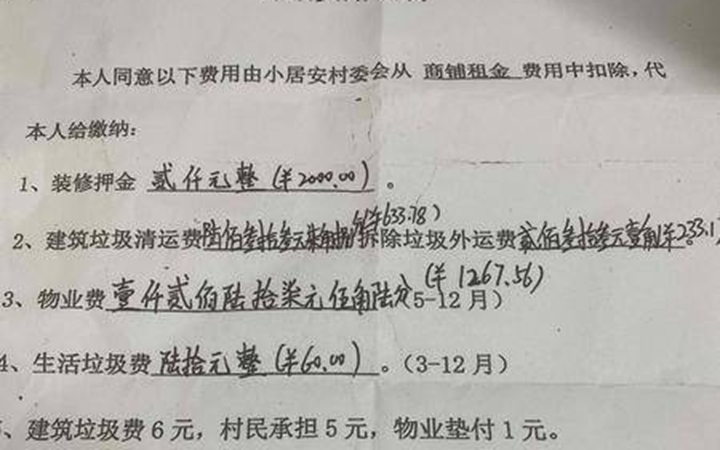 本人同意以下费用由小居安村委会从 商铺租金 费用中扣除,代
本人给缴纳:
1、装修押金 贰仟元整(¥2000.00)。
2、建筑垃圾清运费陆佰叁拾叁元柒角捌分(¥633.78)拆除垃圾外运费贰佰叁拾叁元壹角(¥233.1
3、物业费壹仟贰佰陆拾柒元伍角陆分(¥1267.56)5-12月)
4、生活垃圾费 陆拾元整(¥60.00)。(3-12月)
、建筑垃圾费6元,村民承担5元,物业垫付1元。